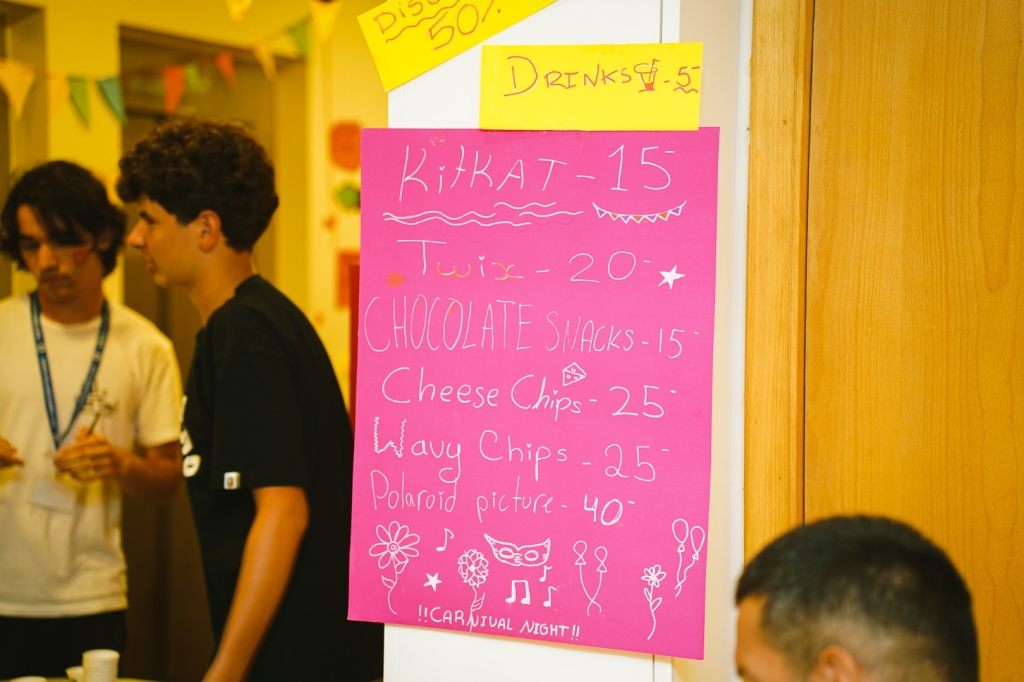 DISCO
50%
DRINKS - 5-
KitKAT - 15-
Twix - 20-
CHOCOLATE SNACKS - 15-
Cheese Chips - 25-
Wavy Chips - 25-
Polaroid picture - 40-
!!CARNIVAL NIGHT!!